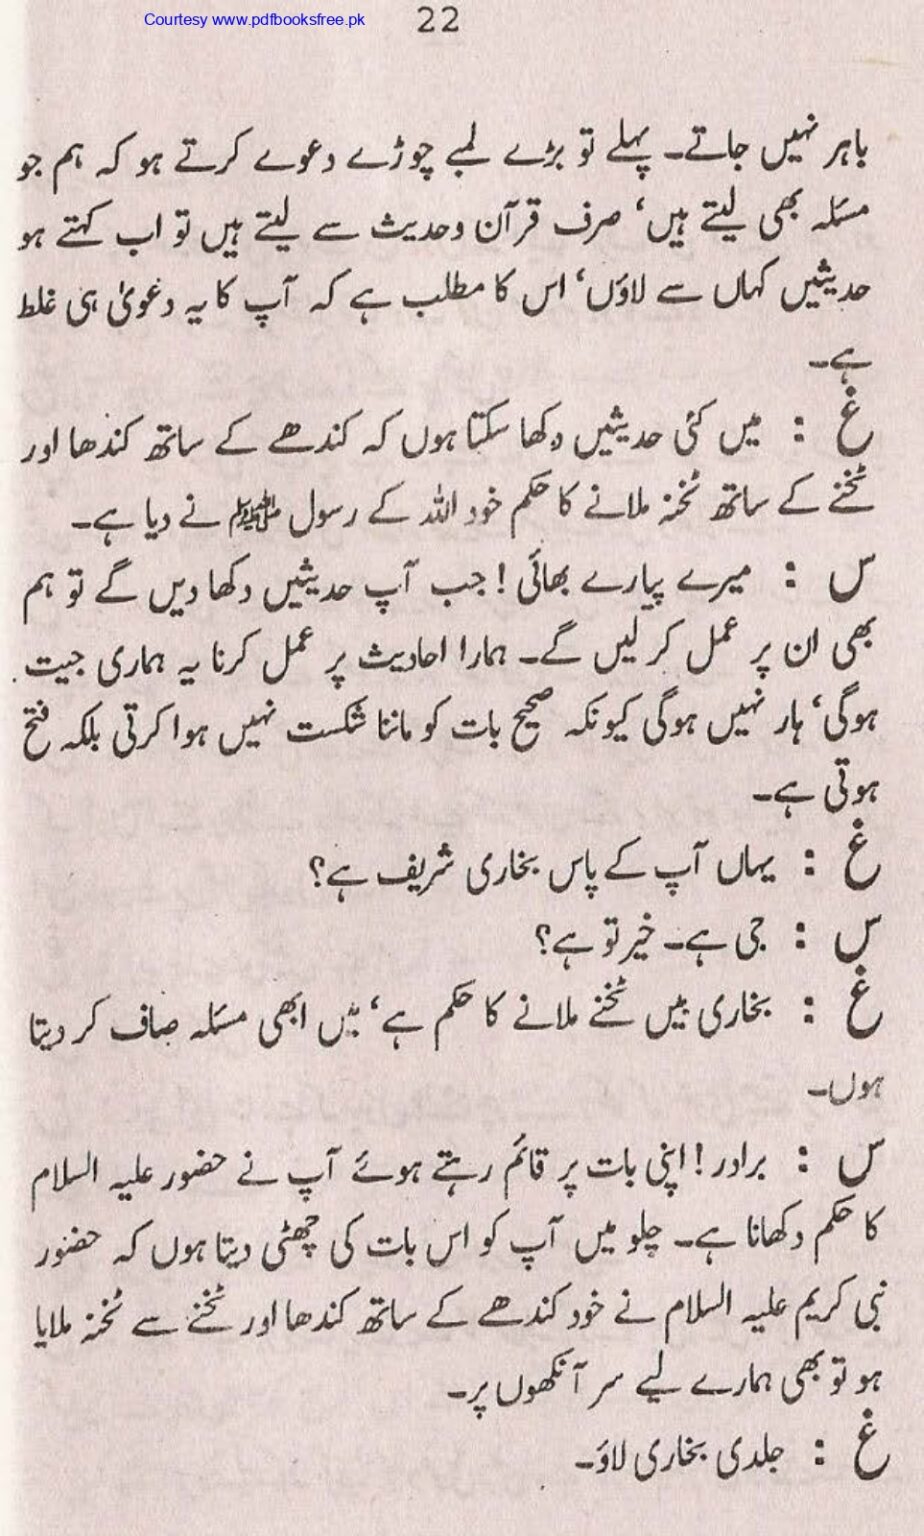 Courtesy www.pdfbooksfree.pk
22
باہر نہیں جاتے۔ پہلے تو بڑے لمبے چوڑے دعوے کرتے ہو کہ ہم جو
مسئلہ بھی لیتے ہیں‘ صرف قرآن وحدیث سے لیتے ہیں تو اب کہتے ہو
حدیثیں کہاں سے لاؤں‘ اس کا مطلب ہے کہ آپ کا یہ دعویٰ ہی غلط
ہے۔
غ : میں کئی حدیثیں دکھا سکتا ہوں کہ کندھے کے ساتھ کندھا اور
ٹخنے کے ساتھ ٹخنہ ملانے کا حکم خود اللہ کے رسول ﷺ نے دیا ہے۔
س : میرے پیارے بھائی ! جب آپ حدیثیں دکھا دیں گے تو ہم
بھی ان پر عمل کر لیں گے۔ ہمارا احادیث پر عمل کرنا یہ ہماری جیت
ہوگی‘ ہار نہیں ہوگی کیونکہ صحیح بات کو ماننا شکست نہیں ہوا کرتی بلکہ فتح
ہوتی ہے۔
غ : یہاں آپ کے پاس بخاری شریف ہے؟
س : جی ہے۔ خیر تو ہے؟
غ : بخاری میں ٹخنے ملانے کا حکم ہے‘ میں ابھی مسئلہ صاف کر دیتا
ہوں۔
س : برادر ! اپنی بات پر قائم رہتے ہوئے آپ نے حضور علیہ السلام
کا حکم دکھانا ہے۔ چلو میں آپ کو اس بات کی چھٹی دیتا ہوں کہ حضور
نبی کریم علیہ السلام نے خود کندھے کے ساتھ کندھا اور ٹخنے سے ٹخنہ ملایا
ہو تو بھی ہمارے لیے سر آنکھوں پر۔
غ : جلدی بخاری لاؤ۔